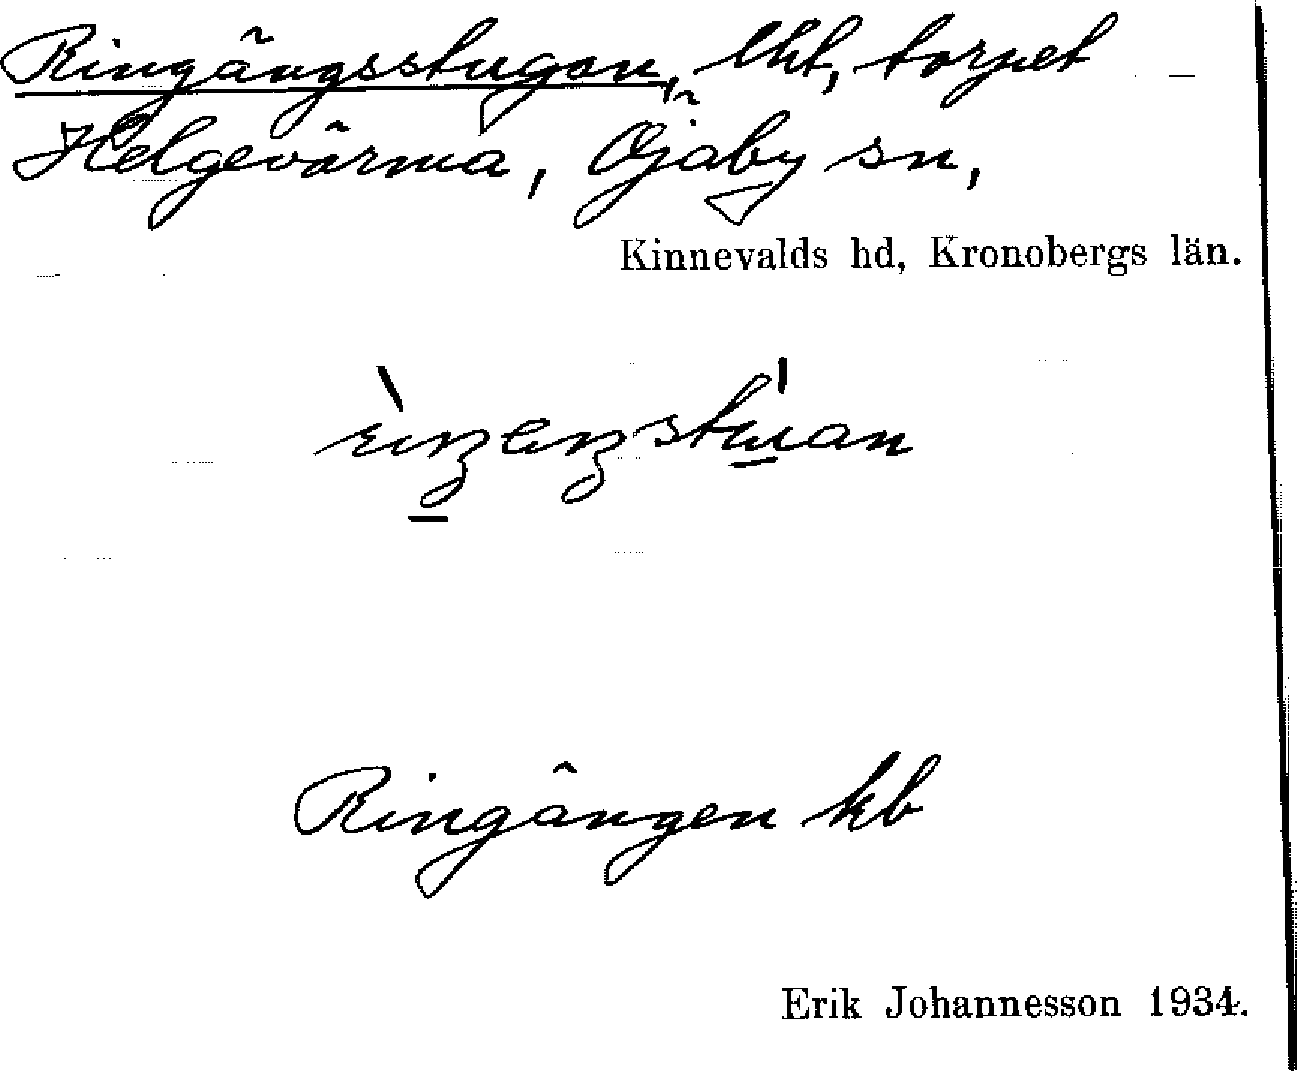 Ringängsstugan, lht, torpet
Helgevärma, Öjaby sn,
Kinnevalds hd, Kronobergs län.
Ringängen kb
Erik Johannesson 1934.